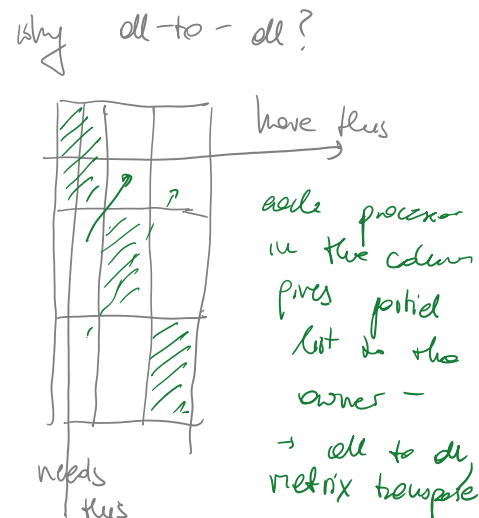 why all-to-all?
have this
each processor
in the column
gives partial
list to the
owner -
→ all to all,
matrix transpose
needs
this